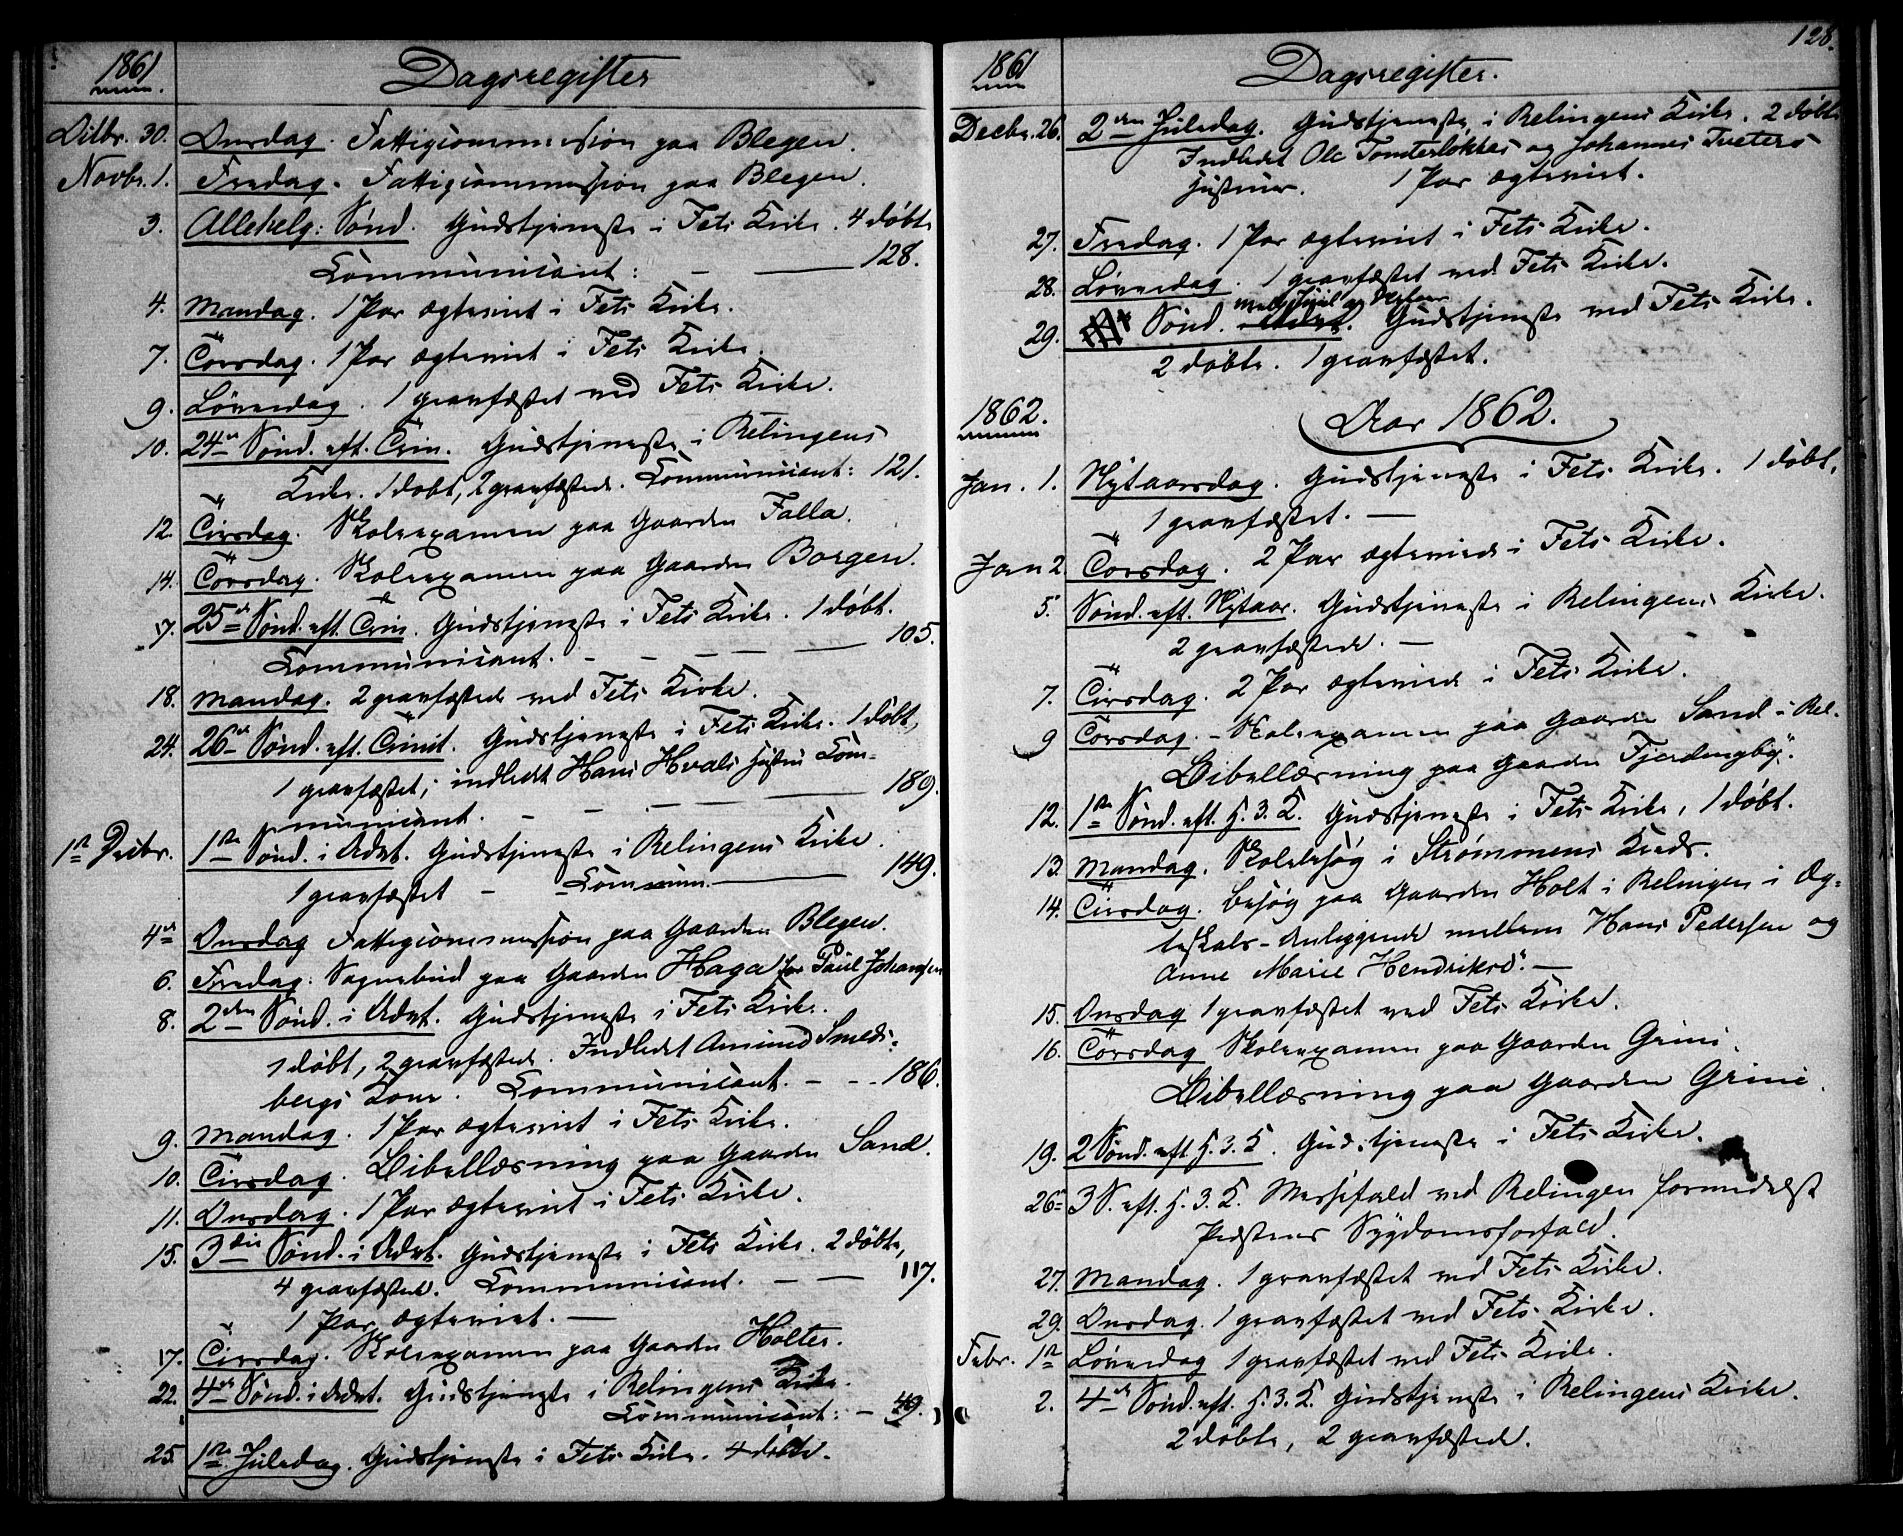 1861
Dagsregister
Octbr. 30. Onsdag. Fattigcommission paa Blegen.
Novbr. 1. Fredag. Fattigcommission paa Blegen.
3. Allehelg: Sønd. Gudstjeneste i Fets Kirke. 4 døbte
Communicant: — — 128.
4. Mandag. 1 Par ægteviet i Fets Kirke.
7. Torsdag. 1 Par ægteviet i Fets Kirke.
9. Løverdag. 1 gravfæstet ved Fets Kirke.
10. 24de Sønd. eft. Trin. Gudstjeneste i Relingens
Kirke. 1 døbt, 2 gravfæstede. Communicant: 121.
12. Tirsdag. Skoleexamen paa Gaarden Falla.
14. Torsdag. Skoleexamen paa Gaarden Borgen.
17. 25de Sønd. eft. Trin. Gudstjeneste i Fets Kirke. 1 døbt.
Communicant. — — — — 105.
18. Mandag. 2 gravfæstede ved Fets Kirke.
24. 26de Sønd. eft. Trinit. Gudstjeneste i Fets Kirke. 1 døbt,
1 gravfæstet; indledt Hans Hvals Hustru Com-
municant. — — — 189.
1ste Decbr. 1ste Sønd. i Advt. Gudstjeneste i Relingens Kirke.
1 gravfæstet — Commun. — 149.
4de Onsdag Fattigcommission paa Gaarden Blegen.
6. Fredag. Sognebud paa Gaarden Haga for Paul Johansen
8. 2den Sønd. i Advt. Gudstjeneste i Fets Kirke.
1 døbt, 2 gravfæstede. Indledt Amund Smeds-
bergs Kone. Communicant. — — 186.
9. Mandag. 1 Par ægteviet i Fets Kirke.
10. Tirsdag. Bibellæsning paa Gaarden Sand.
11. Onsdag. 1 Par ægteviet i Fets Kirke.
15. 3die Sønd. i Advt. Gudstjeneste i Fets Kirke. 2 døbte,
4 gravfæstede. Communicant. — — 117.
1 Par ægteviet. —
17. Tirsdag. Skoleexamen paa Gaarden Holter.
22. 4de Sønd. i Advt. Gudstjeneste i Relingens Kirke.
Communicant: — 49.
25. 1ste Juledag. Gudstjeneste i Fets Kirke. 4 døbte.
128.
1861
Dagsregister.
Decbr. 26. 2den Juledag. Gudstjeneste i Relingens Kirke. 2 døbte
Indledt Ole Tomterløkkes og Johannes Tveters
Hustruer. 1 Par ægteviet.
27. Fredag. 1 Par ægteviet i Fets Kirke.
28. Løverdag. 1 gravfæstet ved Fets Kirke.
29. Sønd. mell. Juul og Nytaar. Gudstjeneste ved Fets Kirke.
2 døbte. 1 gravfæstet.
1862.
Aar 1862.
Jan. 1. Nytaarsdag. Gudstjeneste i Fets Kirke. 1 døbt,
1 gravfæstet. —
Jan 2. Torsdag. 2 Par ægteviede i Fets Kirke.
5. Sønd. eft. Nytaar. Gudstjeneste i Relingens Kirke.
2 gravfæstede. —
7. Tirsdag. 2 Par ægteviede i Fets Kirke.
9 Torsdag. — Skoleexamen paa Gaarden Sand i Rel.
Bibellæsning paa Gaarden Fjerdingby.
12. 1ste Sønd. eft. H. 3. K. Gudstjeneste i Fets Kirke, 1 døbt.
13. Mandag. Skolebesøg i Strømmens Kreds.
14. Tirsdag. Besøg paa Gaarden Holt i Relingen i Æg-
teskabs-Anliggende mellem Hans Pedersen og
Anne Marie Hendriksd. —
15. Onsdag 1 gravfæstet ved Fets Kirke.
16. Torsdag Skoleexamen paa Gaarden Grini.
Bibellæsning paa Gaarden Grini.
19. 2 Sønd. eft H. 3. K. Gudstjeneste i Fets Kirke.
26de 3 S. eft. H. 3. K. Messefald ved Relingen formedelst
Præstens Sygdomsforfald.
27. Mandag. 1 gravfæstet ved Fets Kirke.
29. Onsdag. 1 gravfæstet ved Fets Kirke.
Febr. 1ste Løverdag 1 gravfæstet ved Fets Kirke.
2. 4de Sønd. eft. H. 3. K. Gudstjeneste i Relingens Kirke.
2 døbte, 2 gravfæstede.